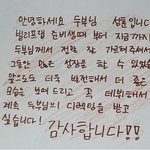 안녕하세요 두부님 성훈입니다
빌리프랩 준비생때 부터 지금까지
두부님께서 정말 잘 가르쳐주셔서
그동안 많은 성장을 할 수 있었습
앞으로도 더욱 발전해서 더 좋은
모습을 보여 드리고 꼭 데뷔해서
계속 두부님의 디레잉을 받고
싶습니다! 감사합니다!!